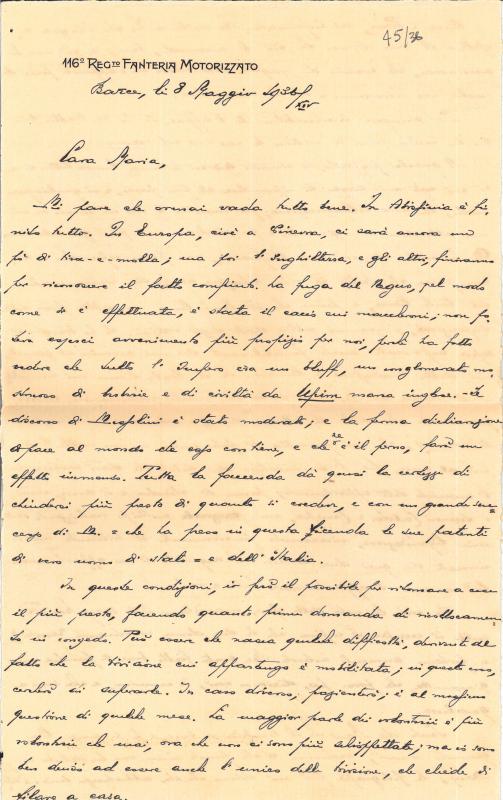 45/36
116º REGTO FANTERIA MOTORIZZATO
Barce, li 8 Maggio 1936/XIV
Cara Maria,
Mi pare che ormai vada tutto bene. In Abissinia è fi-
nito tutto. In Europa, cioè a Ginevra, ci sarà ancora un
pò di tira-e-molla; ma poi l'Inghilterra, e gli altri, finiranno
per riconoscere il fatto compiuto. La fuga del Negus, pel modo
come si è effettuata, è stata il cacio sui maccheroni; non po-
teva esserci avvenimento più propizio per noi, perchè ha fatto
vedere che tutto l'Impero era un bluff, un conglomerato mo
struoso di barbarie e di civiltà da Upim marca inglese. Il
discorso di Mussolini è stato moderato; e la ferma dichiarazione
di pace al mondo che esso contiene, e che ne è il perno, farà un
effetto immenso. Tutta la faccenda dà quasi la certezza di
chiudersi più presto di quanto si credeva, e con un grande suc=
cesso di M. = che ha preso in questa faccenda le sue patenti
di vero uomo di stato = e dell'Italia.
In queste condizioni, io farò il possibile per ritornare a casa
il più presto, facendo quanto prima domanda di ricollocamen-
to in congedo. Può essere che nasca qualche difficoltà, derivante dal
fatto che la Divisione cui appartengo è mobilitata; in questo caso,
cercherò di superarla. In caso diverso, pazienterò; è al massimo
questione di qualche mese. La maggior parte dei volontari è più
volontaria che mai, ora che non ci sono più schioppettate; ma io sono
ben deciso ad essere anche l'unico della Divisione, che chiede di
filare a casa.